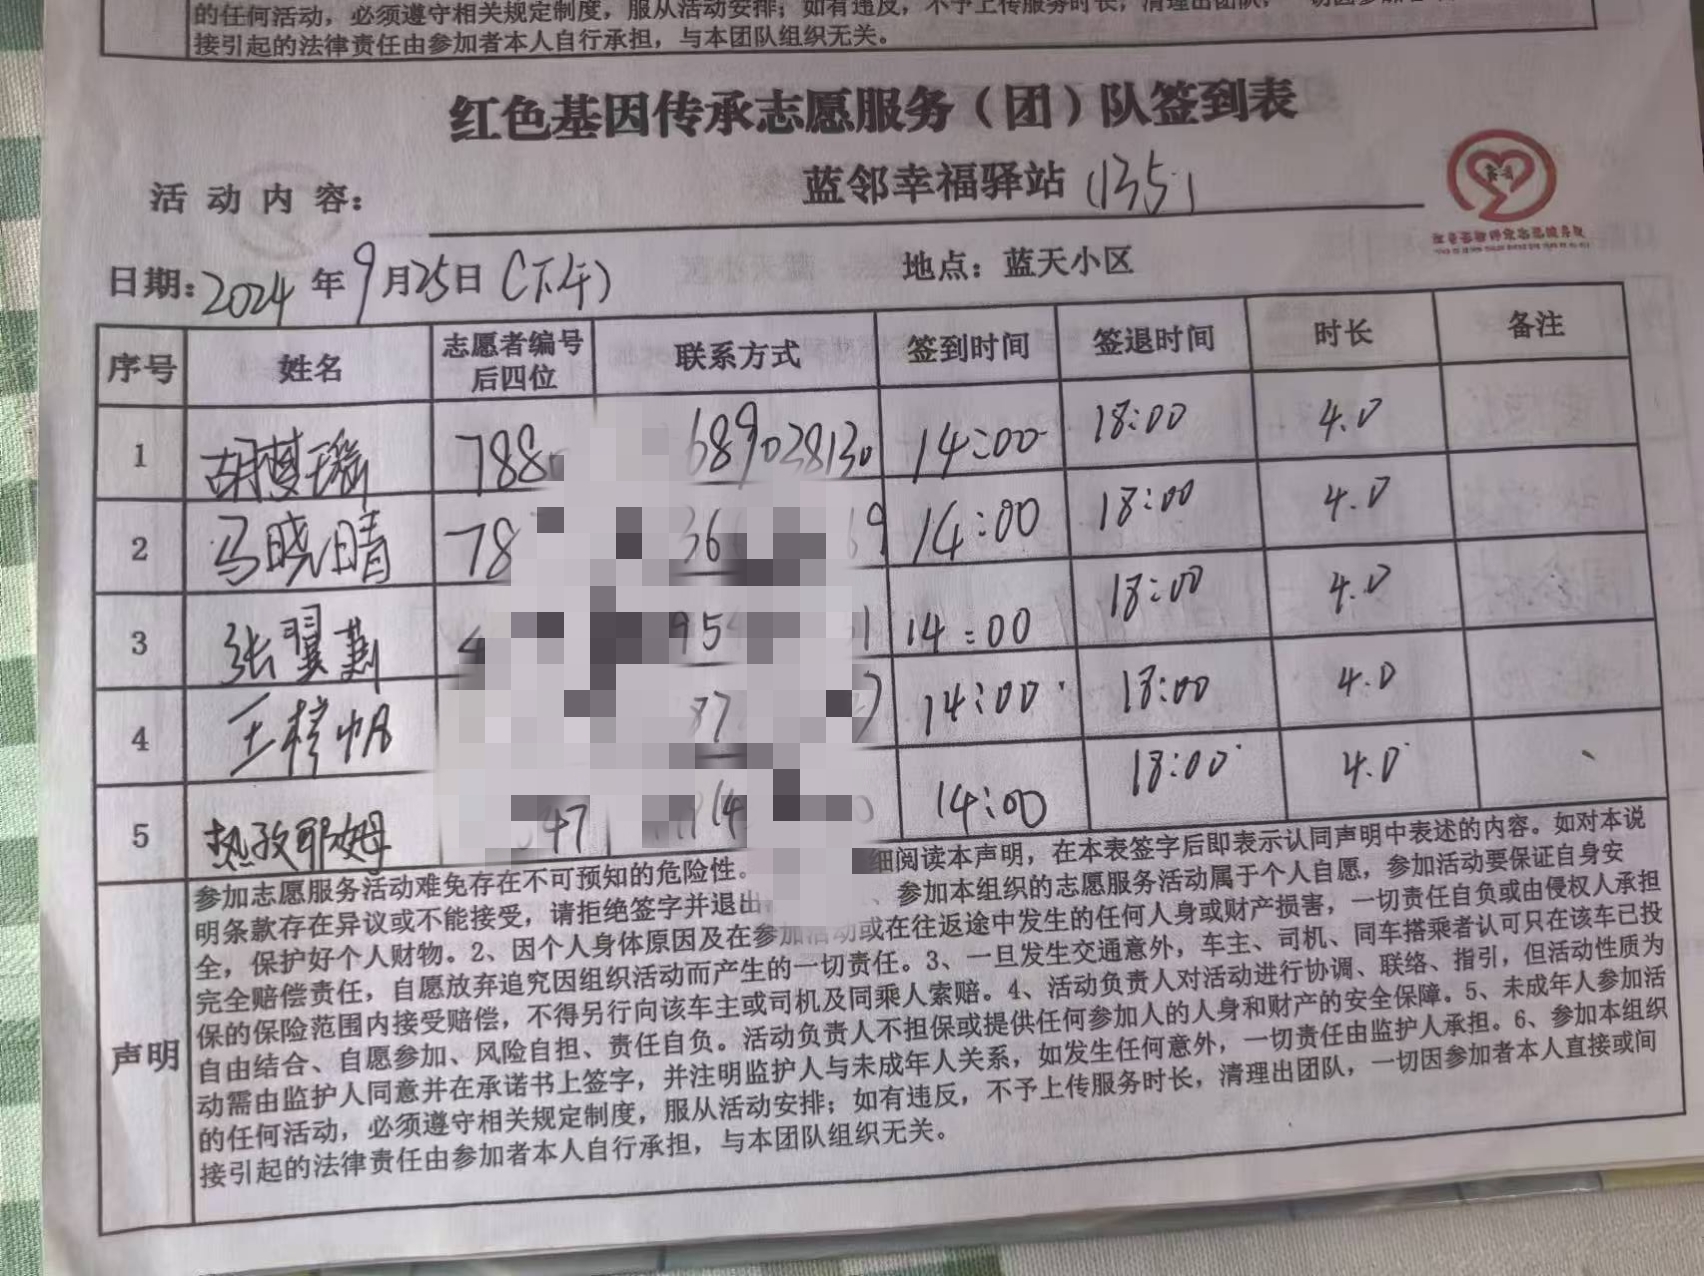 的任何活动，必须遵守相关规定制度，服从活动安排；如有违反，不予上传服务时长，清理出团队，一切因参加者
接引起的法律责任由参加者本人自行承担，与本团队组织无关。
红色基因传承志愿服务（团）队签到表
活动内容： 蓝邻幸福驿站（135）
日期：2024年9月25日（下午） 地点：蓝天小区
序号 姓名 志愿者编号后四位 联系方式 签到时间 签退时间 时长 备注
1 胡梦瑶 788 689028130 14:00 18:00 4.0
2 马晓晴 78 36 69 14:00 18:00 4.0
3 张翼 4 95 1 14:00 18:00 4.0
4 王梓帆 87 7 14:00 18:00 4.0
5 热孜耶姆 47 14 0 14:00 18:00 4.0
声明
参加志愿服务活动难免存在不可预知的危险性。 细阅读本声明，在本表签字后即表示认同声明中表述的内容。如对本说
明条款存在异议或不能接受，请拒绝签字并退出 、参加本组织的志愿服务活动属于个人自愿，参加活动要保证自身安
全，保护好个人财物。2、因个人身体原因及在参加活动或在往返途中发生的任何人身或财产损害，一切责任自负或由侵权人承担
完全赔偿责任，自愿放弃追究因组织活动而产生的一切责任。3、一旦发生交通意外，车主、司机、同车搭乘者认可只在该车已投
保的保险范围内接受赔偿，不得另行向该车主或司机及同乘人索赔。4、活动负责人对活动进行协调、联络、指引，但活动性质为
自由结合、自愿参加、风险自担、责任自负。活动负责人不担保或提供任何参加人的人身和财产的安全保障。5、未成年人参加活
动需由监护人同意并在承诺书上签字，并注明监护人与未成年人关系，如发生任何意外，一切责任由监护人承担。6、参加本组织
的任何活动，必须遵守相关规定制度，服从活动安排；如有违反，不予上传服务时长，清理出团队，一切因参加者本人直接或间
接引起的法律责任由参加者本人自行承担，与本团队组织无关。